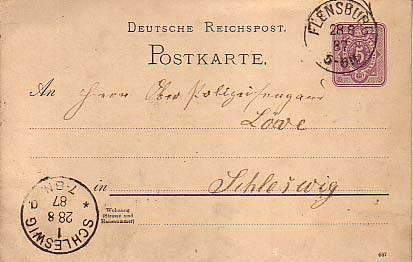 DEUTSCHE REICHSPOST.
POSTKARTE.
FLENSBURG
28 8
87
5-6N
5
An Herrn Ober
Löwe
in Schleswig
Wohnung
(Strasse und
Hausnummer)
SCHLESWIG
1
28 8
87
7-8N
687